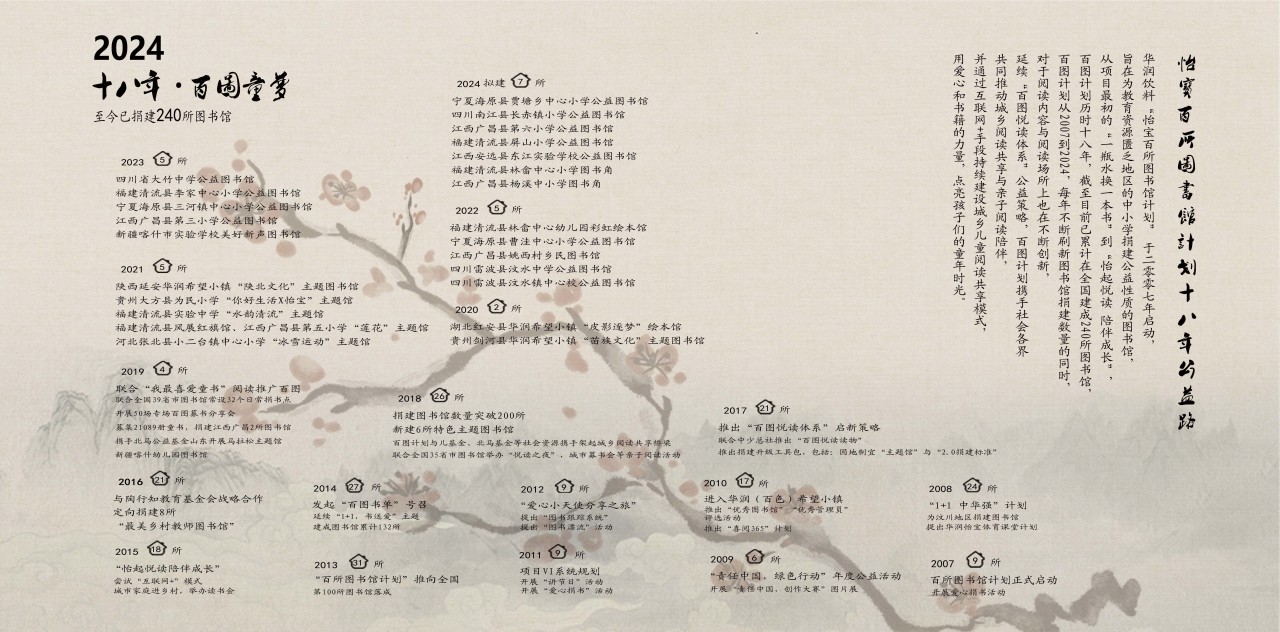 2024
十八年·百图童梦
至今已捐建240所图书馆
2023 5 所
四川省大竹中学公益图书馆
福建清流县李家中心小学公益图书馆
宁夏海原县三河镇中心小学公益图书馆
江西广昌县第三小学公益图书馆
新疆喀什市实验学校美好新声图书馆
2021 5 所
陕西延安华润希望小镇“陕北文化”主题图书馆
贵州大方县为民小学“你好生活X怡宝”主题馆
福建清流县实验中学“水韵清流”主题馆
福建清流县凤展红旗馆、江西广昌县第五小学“莲花”主题馆
河北张北县小二台镇中心小学“冰雪运动”主题馆
2019 4 所
联合“我最喜爱童书”阅读推广百图
联合全国39省市图书馆常设32个日常捐书点
开展50场专场百图募书分享会
募集21089册童书，捐建江西广昌2所图书馆
携手北马公益基金山东开展马拉松主题馆
新疆喀什幼儿园图书馆
2016 21 所
与陶行知教育基金会战略合作
定向捐建8所
“最美乡村教师图书馆”
2015 18 所
“怡起悦读陪伴成长”
尝试“互联网+”模式
城市家庭进乡村，举办读书会
2024 拟建 7 所
宁夏海原县贾塘乡中心小学公益图书馆
四川南江县长赤镇小学公益图书馆
江西广昌县第六小学公益图书馆
福建清流县屏山小学公益图书馆
江西安远县东江实验学校公益图书馆
福建清流县林畲中心小学图书角
江西广昌县杨溪中小学图书角
2022 5 所
福建清流县林畲中心幼儿园彩虹绘本馆
宁夏海原县曹洼中心小学公益图书馆
江西广昌县姚西村乡民图书馆
四川雷波县汶水中学公益图书馆
四川雷波县汶水镇中心校公益图书馆
2020 2 所
湖北红安县华润希望小镇“皮影逐梦”绘本馆
贵州剑河县华润希望小镇“苗族文化”主题图书馆
2018 26 所
捐建图书馆数量突破200所
新建6所特色主题图书馆
百图计划与儿基金、北马基金等社会资源携手架起城乡阅读共享桥梁
联合全国35省市图书馆举办“悦读之夜”，城市募书会等亲子阅读活动
2014 27 所
发起“百图书单”号召
延续“1+1，书送爱”主题
建成图书馆累计132所
2013 31 所
“百所图书馆计划”推向全国
第100所图书馆落成
2012 9 所
“爱心小天使分享之旅”
提出“图书跟踪系统”
提出“图书漂流”活动
2011 9 所
项目VI系统规划
开展“讲节日”活动
开展“爱心捐书”活动
2017 21 所
推出“百图悦读体系”启新策略
联合中少总社推出“百图悦读读物”
推出捐建升级工具包，包括：因地制宜“主题馆”与“2.0捐建标准”
2010 17 所
进入华润（百色）希望小镇
推出“优秀图书馆”“优秀管理员”
评选活动
推出“喜阅365”计划
2009 6 所
“责任中国，绿色行动”年度公益活动
开展“责任中国，创作大赛”图片展
2008 24 所
“1+1 中华强”计划
为汶川地区捐建图书馆
提出华润怡宝体育课堂计划
2007 9 所
百所图书馆计划正式启动
开展爱心捐书活动
怡宝百所图书馆计划十八年公益路
华润饮料“怡宝百所图书馆计划”于二零零七年启动，
旨在为教育资源匮乏地区的中小学捐建公益性质的图书馆，
从项目最初的“一瓶水换一本书”到“怡起悦读 陪伴成长”，
百图计划历时十八年，截至目前已累计在全国建成240所图书馆，
百图计划从2007到2024，每年不断刷新图书馆捐建数量的同时，
对于阅读内容与阅读场所上也在不断创新，
延续“百图悦读体系”公益策略，百图计划携手社会各界
共同推动城乡阅读共享与亲子阅读陪伴，
并通过互联网+手段持续建设城乡儿童阅读共享模式，
用爱心和书籍的力量，点亮孩子们的童年时光。